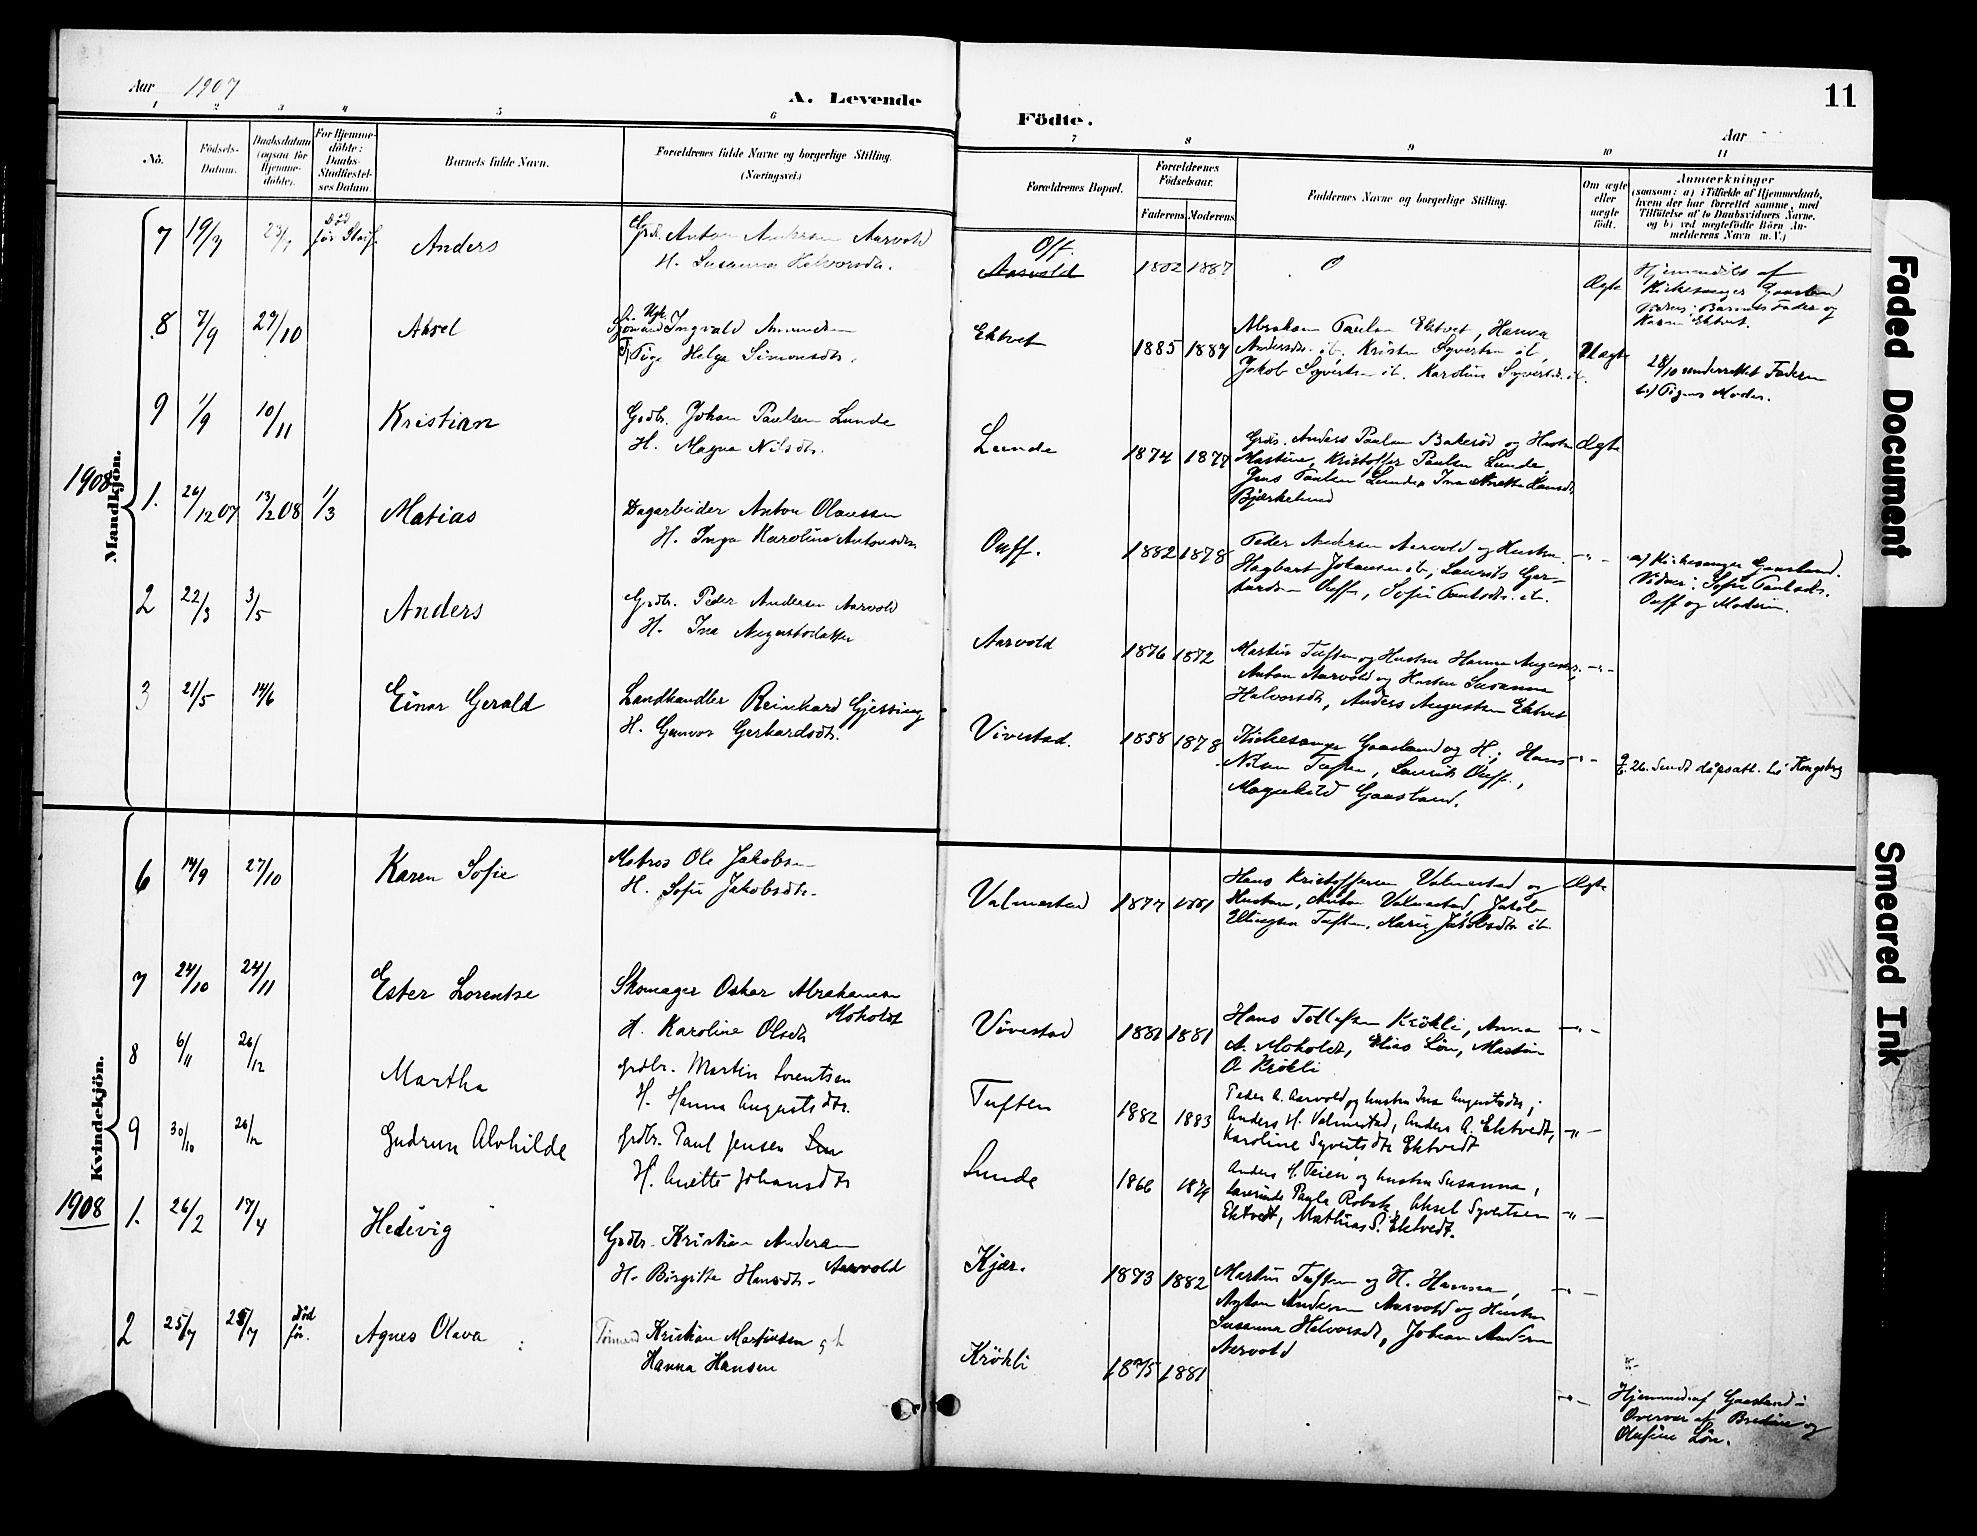 Aar 1907
A. Levende
Födte.
11
Aar
1 2 3 4 5 6 7 8 9 10 11
No.
Födsels-
Datum.
Daabsdatum
(ogsaa for
Hjemme-
döbte).
For Hjemme-
döbte:
Daabs-
Stadfæstel-
ses Datum.
Barnets fulde Navn.
Forældrenes fulde Navne og borgerlige Stilling.
(Næringsvei.)
Forældrenes Bopæl.
Forældrenes
Födselsaar.
Faderens Moderens
Faddernes Navne og borgerlige Stilling.
Om ægte
eller
uægte
födt.
Anmærkninger
(saasom: a) i Tilfælde af Hjemmedaab,
hvem der har forrettet samme, med
Tilföielse af to Daabsvidners Navne,
og b) ved uægtefödte Börn An-
melderens Navn m. V.)
Mandkjön.
7 19/7 23/7 Död för Stadf. Anders
Grdr. Anton Andersen Aarvold
H. Susanna Halvorsdtr.
Off.
Aarvold 1882 1887 O Ægte
Hjemmedöbt af
Kirkesanger Gaasland
Vidner: Barnets Fader og
Karen Ektvet.
8 7/9 27/10 Aksel
Ugk.
Sjömand Ingvald Amundsen
Pige Helga Simonsdtr.
Ektvet 1885 1887
Abraham Paulsen Ektvet, Hanna
Andersdtr. ib. Kristen Syvertsen ib,
Jakob Syvertsen ib. Karoline Syvertsd. ib.
Uægte
28/10 underrettet Faderen
b.) Pigens Moder.
9 1/9 10/11 Kristian
Grdbr. Johan Paulsen Lunde
H. Magna Nilsdtr.
Lunde 1874 1877
Grdr. Anders Paulsen Bakeröd og Hustru
Mastine, Kristoffer Paulsen Lunde,
Jens Paulsen Lunde, Ina Anette Hansdtr
Bjerkelund
Ægte
1908
1. 26/12 07 13/2 08 1/3 Matias
Dagarbeider Anton Olaussen
H. Inga Karoline Antonsdtr.
Ouff. 1882 1878
Peder Andersen Aarvold og Hustru.
Hagbart Johansen ib, Laurits Ger-
hardsen Ouff, Sofie Paulsdtr. ib.
-"-
a) Kirkesanger Gaasland.
Vidner: Sofie Paulsdtr.
Ouff og Moderen.
2 22/3 3/5 Anders
Grdbr. Peder Andersen Aarvold
H. Ina Augustsdatter
Aarvold 1876 1872
Martin Tuften og Hustru Hanna Augustsd.
Anton Aarvold og Hustru Susanna
Halvorsdtr, Anders Augustsen Ektvet
-"-
3 21/5 14/6 Einar Gerald
Landhandler Reinhard Gjessing
H. Gunvor Gerhardsdtr.
Vivestad. 1858 1878
Kirkesanger Gaasland og H; Hans
Nilsen Tuften, Laurits Ouff,
Magnhild Gaasland.
-"-
9/6 26. Sendt dåpsatt. til Kongsberg
Kvindekjön.
6 14/9 27/10 Karen Sofie
Matros Ole Jakobsen
H. Sofie Jakobsdtr.
Valmestad 1877 1881
Hans Kristoffersen Valmestad og
Hustru, Anton Valmestad, Jakob
Ellingsen Tuften, Marie Jakobsdtr ib.
Ægte
7 24/10 24/11 Ester Lorentse
Skomager Oskar Abrahamsen
Moholdt
H. Karoline Olsdtr
Vivestad 1881 1881
Hans Tollefsen Krökli, Anna
A. Moholdt, Elias Lön, Martin
O. Krökli
-"-
8 6/11 26/12 Martha
Grdbr. Martin Lorentsen
H. Hanna Augustsdtr.
Tuften 1882 1883
Peder A. Aarvold og hustru Ina Augustsdtr.;
Anders H. Valmestad, Anders A. Ektvedt,
Karoline Syvertsdtr Ektvedt
-"-
9 30/10 26/12 Gudrun Alvhilde
Grdbr. Paul Jensen
H. Anette Johansdtr
Lunde 1866 1874
Anders H. Teien og hustru Susanna,
Paula Robak, Aksel Syvertsen
Ektvedt, Mathias S. Ektvedt.
-"-
1908
1. 26/2 17/4 Hedevig
Grdbr. Kristian Andersen
Aarvold
H. Birgitte Hansdtr.
Kjær. 1873 1882
Martin Tuften og H. Hanna,
Anton Andersen Aarvold og Hustru
Susanna Halvorsdtr, Johan Andersen
Aarvold
-"-
2 25/7 25/7 Död för. Agnes Olava
Tömmerm. Kristian Martinsen og h
Hanna Hansen
Krökli 1875 1881
-"-
Hjemmed. af Gaasland i
Overvær af Bredine og
Olufine Lön.
Faded Document
Smeared Ink